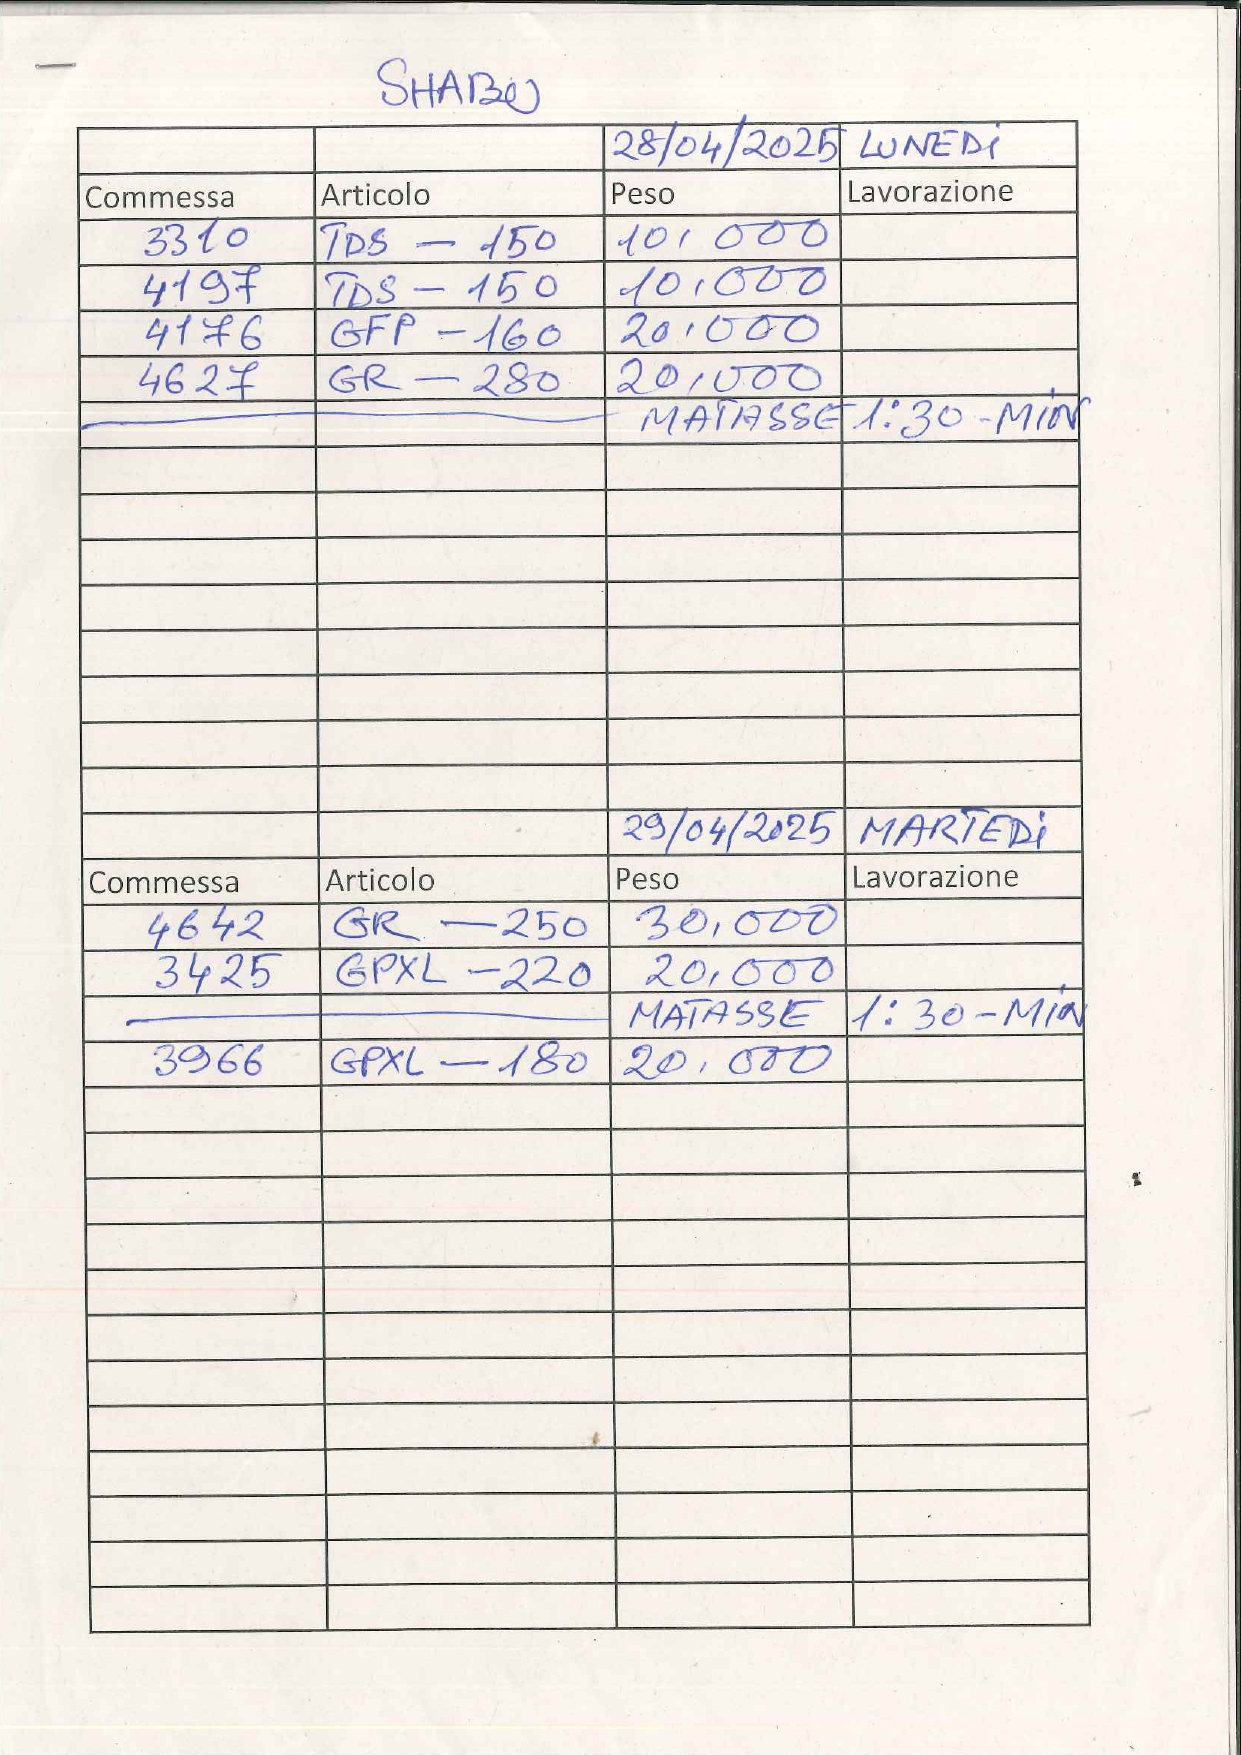 28/04/2025 LUNEDi
Commessa Articolo Peso Lavorazione
3310 TDS — 150 10,000
4197 TDS - 150 10,000
4176 GFP - 160 20,000
4627 GR — 280 20,000
MATASSE 1:30 - MiN
29/04/2025 MARTEDi
Commessa Articolo Peso Lavorazione
4642 GR — 250 30,000
3425 GPXL - 220 20,000
MATASSE 1:30 - MiN
3966 GPXL — 180 20,000